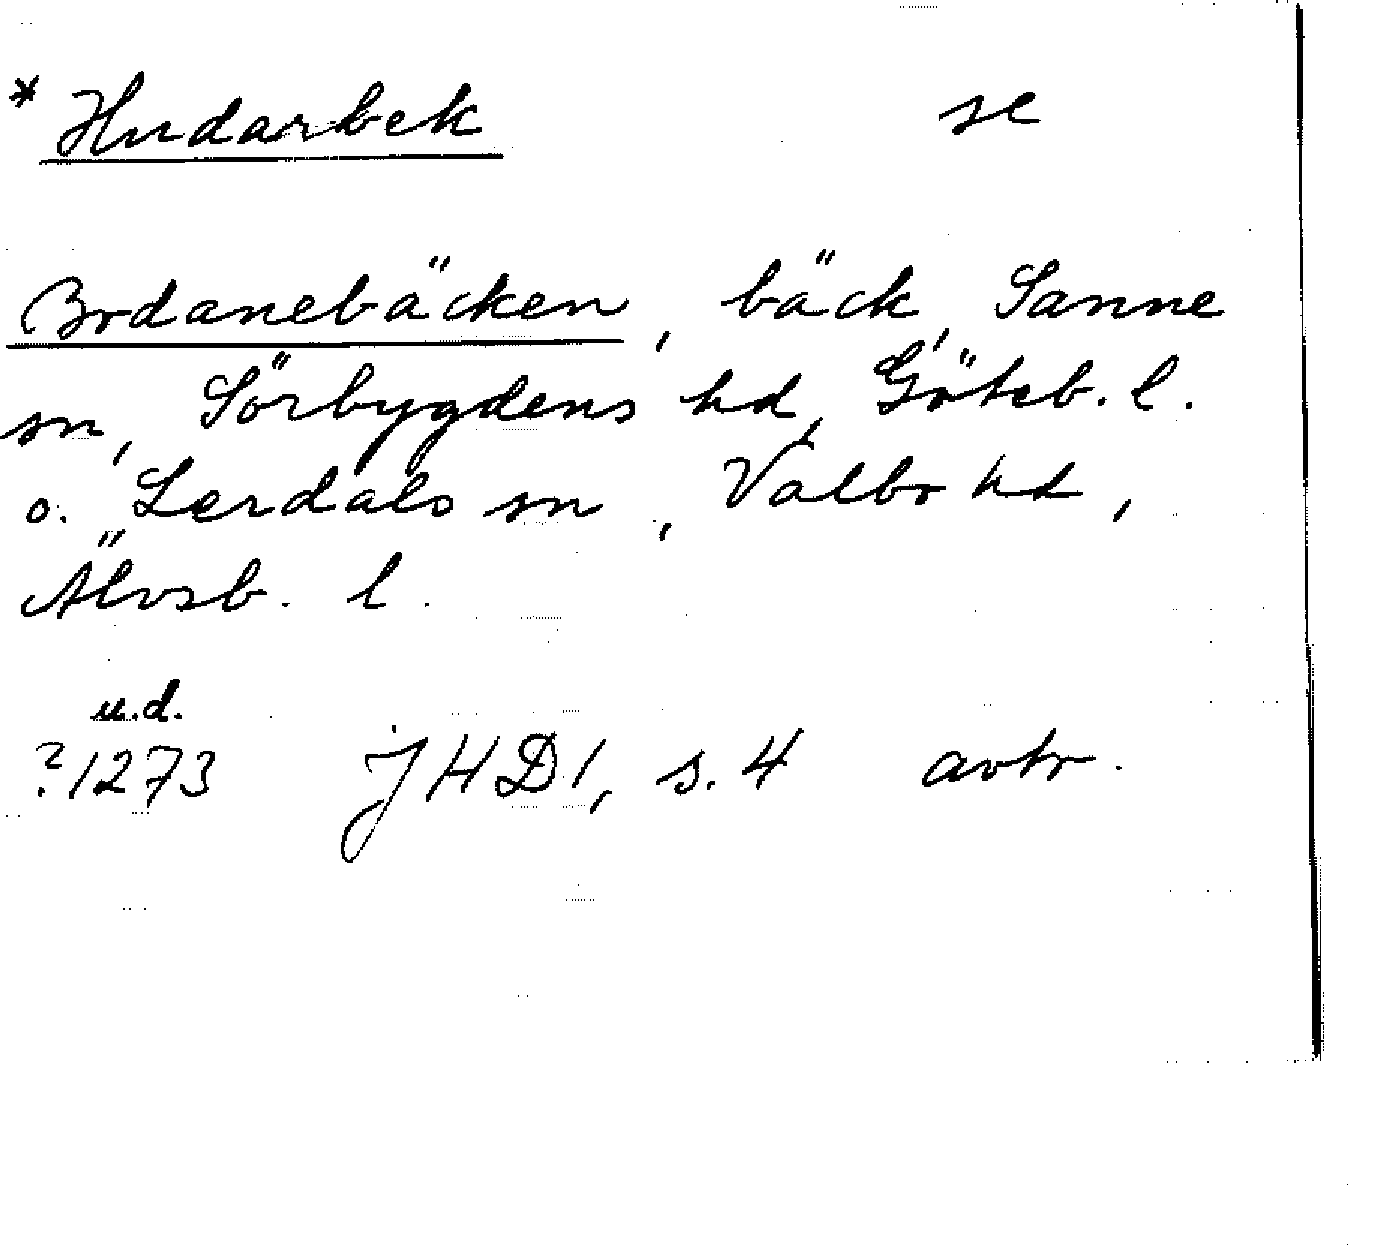 * Hudarbek se
Bodanebäcken, bäck, Sanne
sn, Sörbygdens hd, Göteb. l.
o. Lerdals sn, Valbo hd,
Älvsb. l.
u.d.
?1273 JHD1, s. 4 avtr.